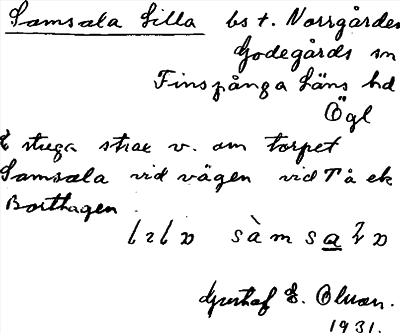 Samsala Lilla bs t. Norrgården
Godegårds sn
Finspånga Läns hd
Ögl
E stuga strax v. om torpet
Samsala vid vägen vid Tå ek
Borthagen.
sàmsa
Gustaf E.
1931.